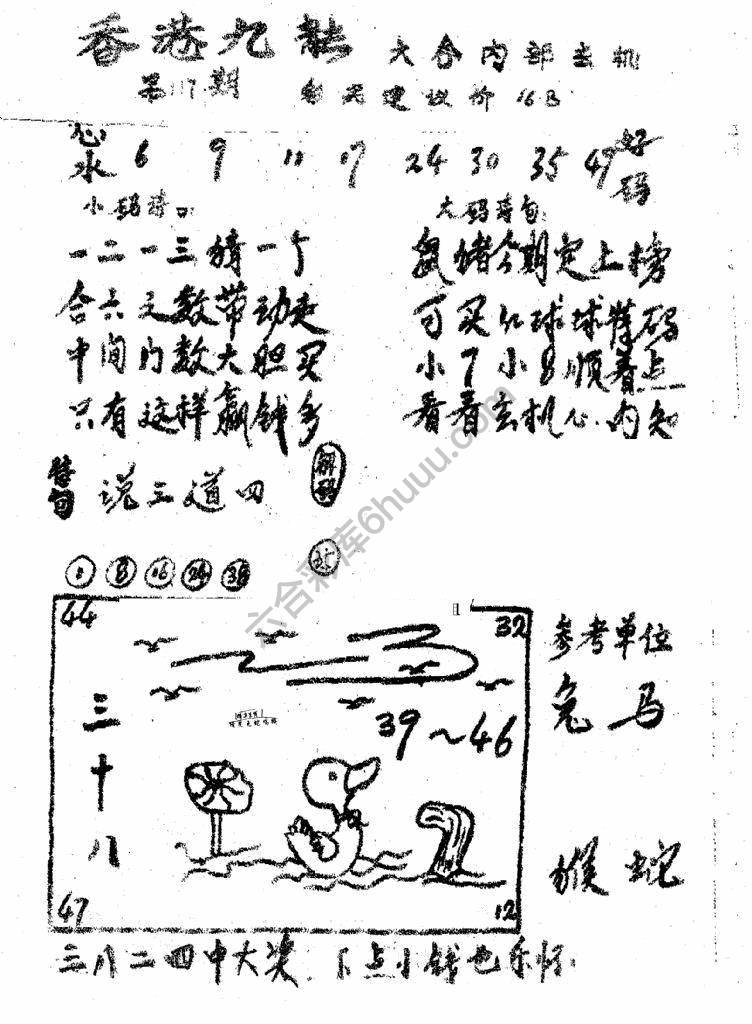 香港九龍 六合内部玄机
第117期
心水 6 9 11 17 24 30 35 49 好码
小码诗口: 六码诗句:
一二一三猜一个
合六之数带动走
中间内数大胆买
只有这样赢钱多
鼠猪今期定上榜
可买红球球特码
小7小8顺着点
看看玄机心内知
特句 说三道四 解码
16 24 35
六合彩库6huuu.com
44 32
39～46
三十八
47 12
参考单位
兔 马
猴 蛇
三八二四中大奖 下点小钱也乐怀